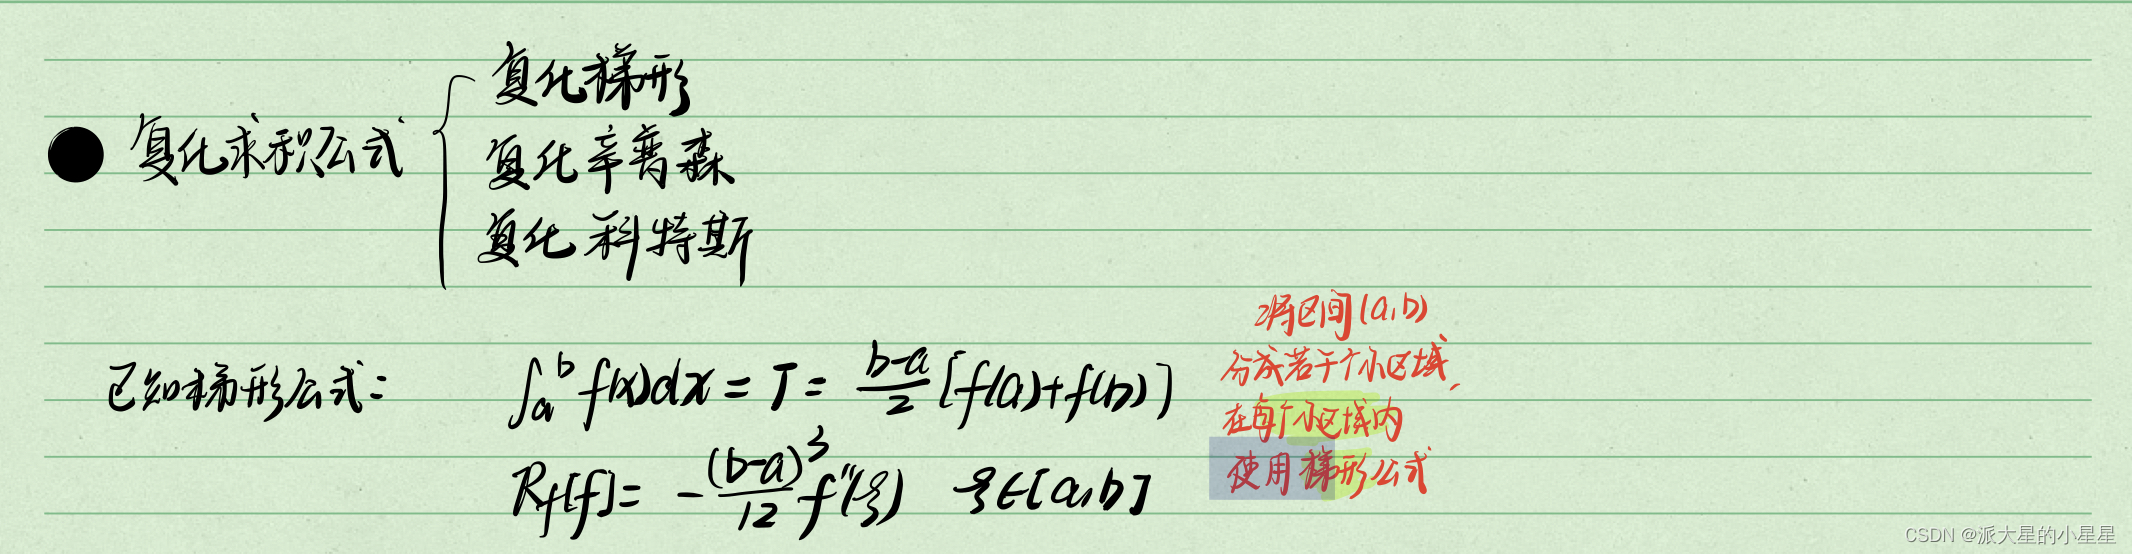 复化求积公式
复化梯形
复化辛普森
复化科特斯
已知梯形公式:
∫_a^b f(x)dx = T = (b-a)/2 [f(a)+f(b)]
R_f[f] = -(b-a)^3/12 f''(ξ) ξ∈[a,b]
将区间(a,b)
分成若干个小区域,
在每个小区域内
使用梯形公式
CSDN @派大星的小星星